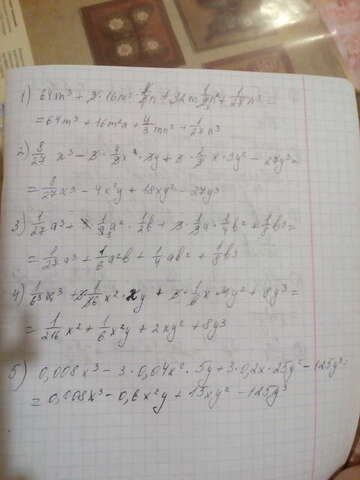 1) 64m³ + 3·16m²·⅓n + 12m·1/9n² + 1/27n³ =
= 64m³ + 16m²n + 4/3mn² + 1/27n³
2) 8/27 x³ - 3·4/9x²·3y + 3·2/3x·9y² - 27y³ =
= 8/27x³ - 4x²y + 18xy² - 27y³
3) 1/27a³ + 3·1/9a²·1/2b + 3·1/3a·1/4b² + 1/8b³ =
= 1/27a³ + 1/6a²b + 1/4ab² + 1/8b³
= 1/216x² + 1/6x²y + 2xy² + 8y³
5) 0,008x³ - 3·0,04x²·5y + 3·0,2x·25y² - 125y³ =
= 0,008x³ - 0,6x²y + 15xy² - 125y³